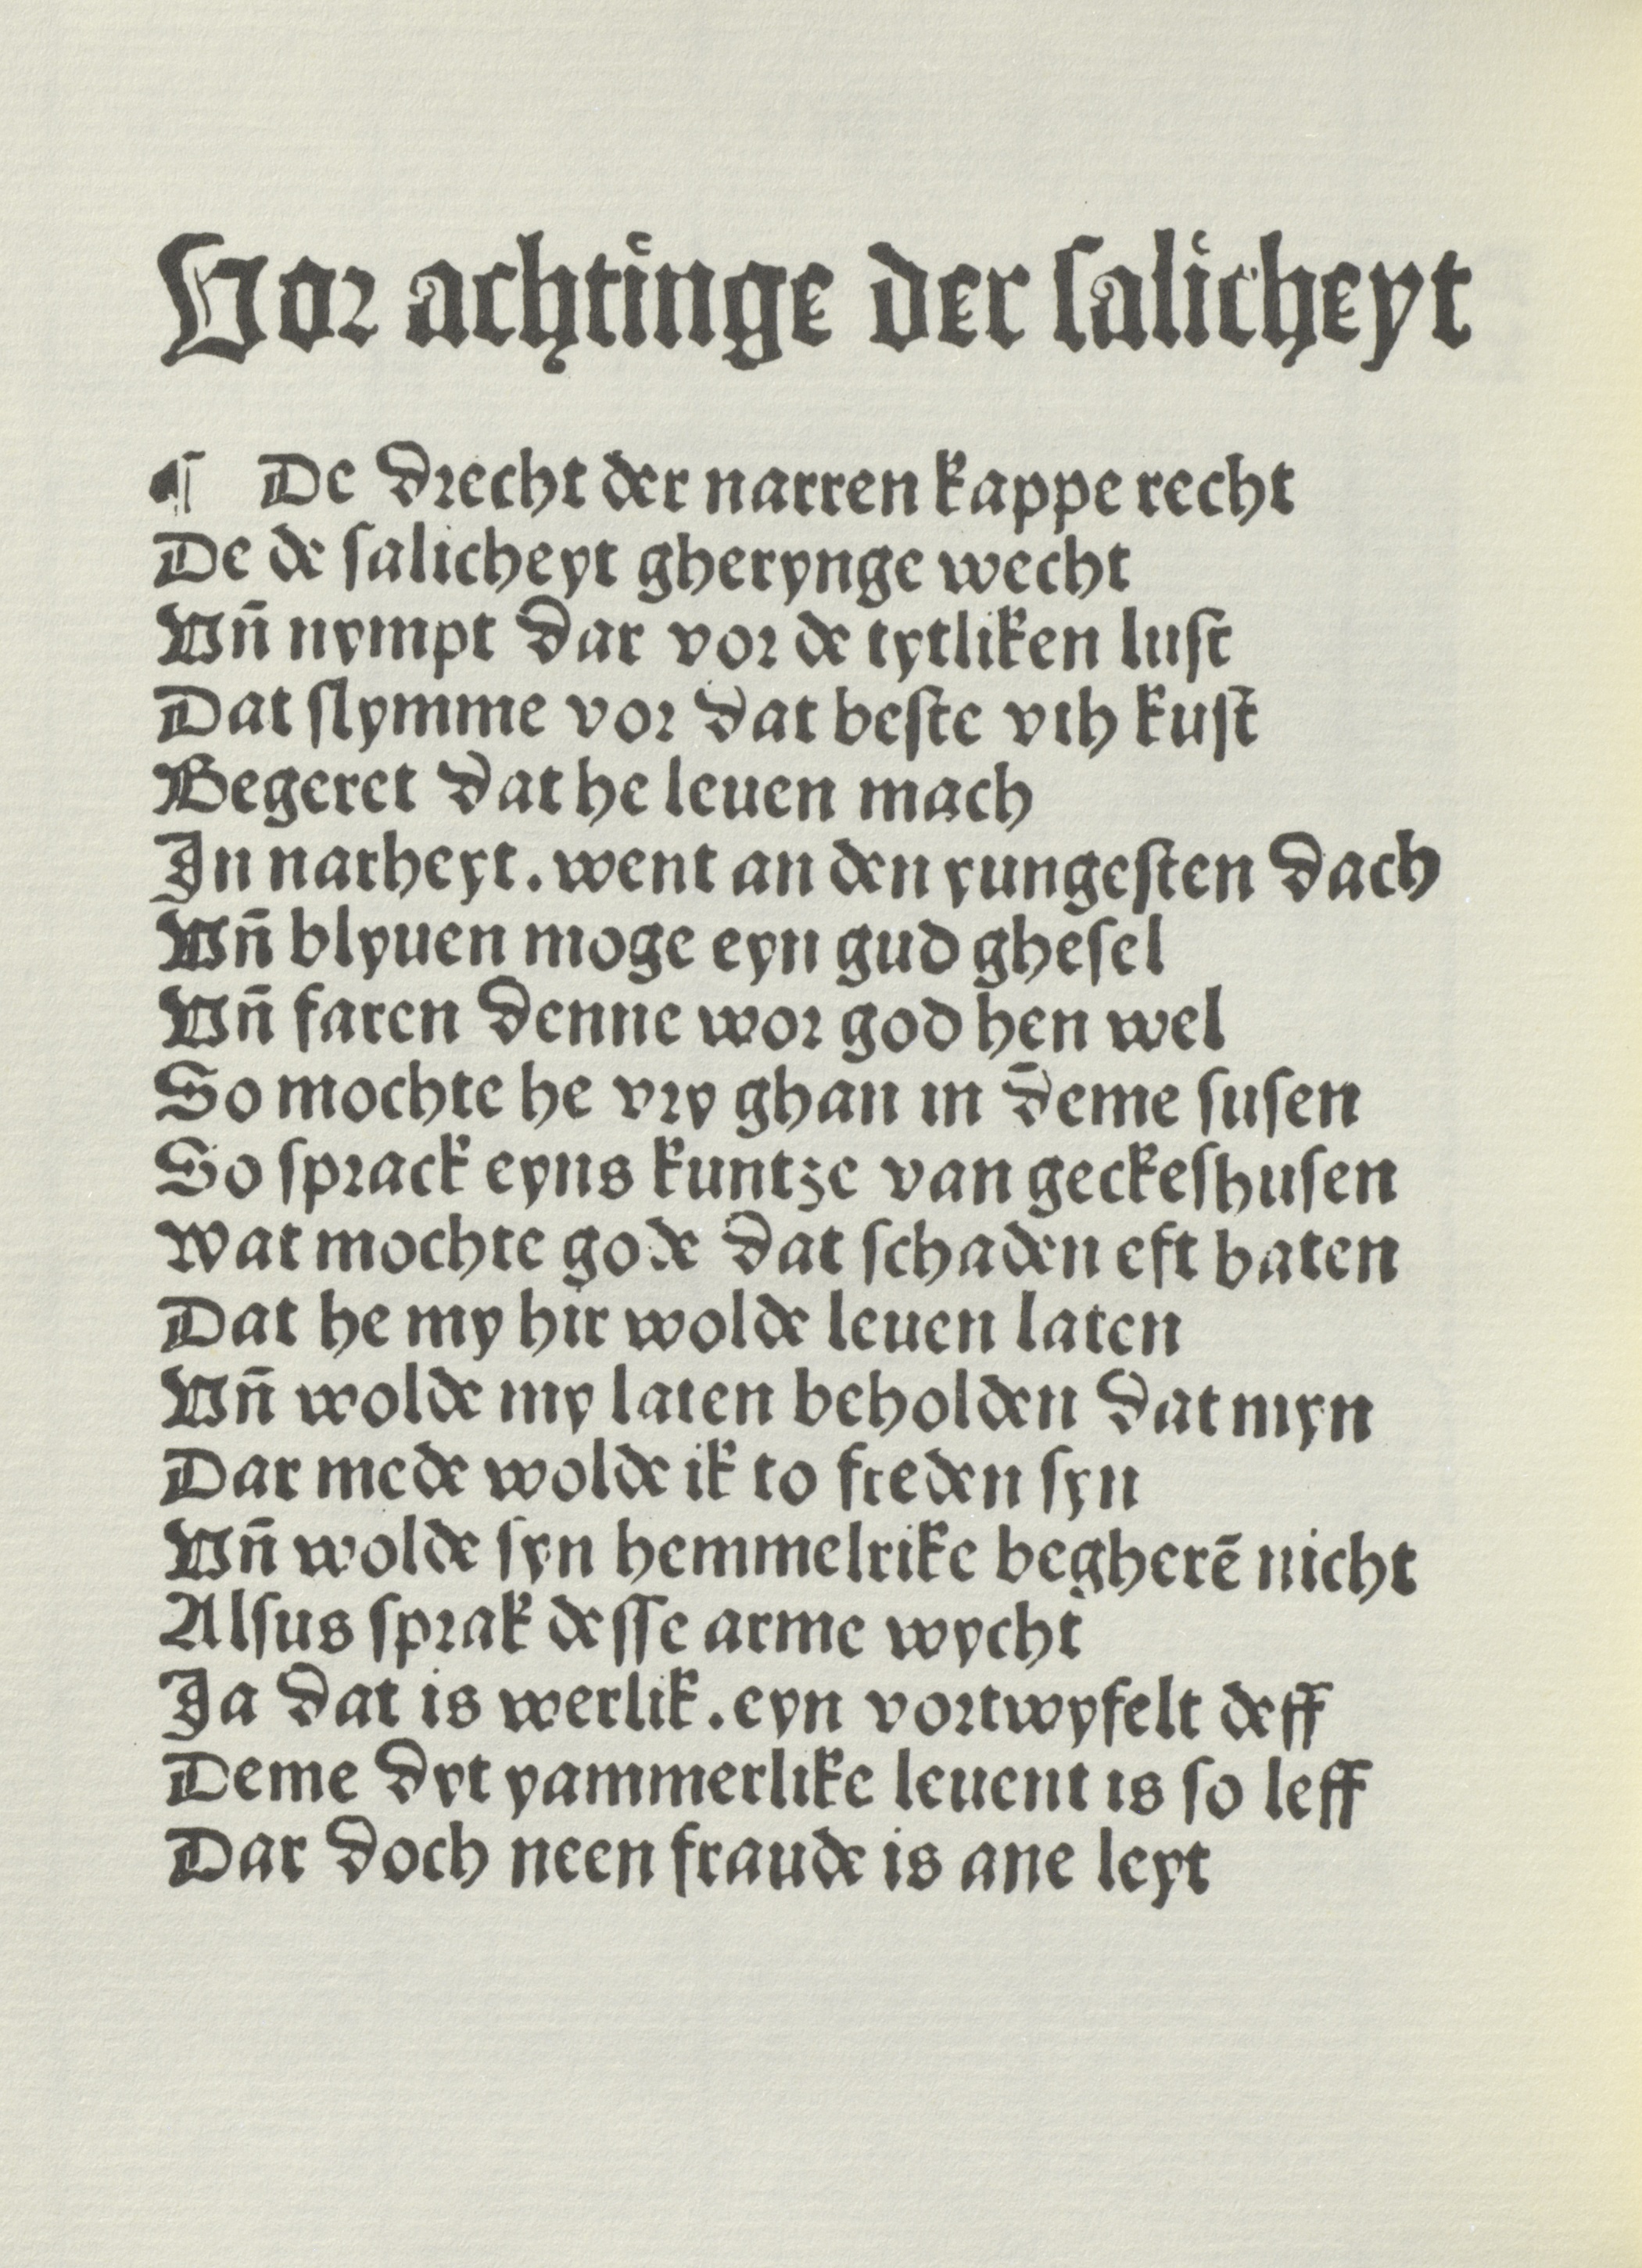 Vor achtinge der ſalicheyt
¶ De drecht der narren kappe recht
De de ſalicheyt gherynge wecht
Vn̄ nympt dar vor de tytliken luſt
Dat ſlymme vor dat beſte vth kuſt
Begeret dat he leuen mach
In narheyt. went an den yungeſten dach
Vn̄ blyuen moge eyn gud gheſel
Vn̄ faren denne wor god hen wel
So mochte he vry ghan in deme ſuſen
So ſprack eyns kuntze van geckeſhuſen
Wat mochte gode dat ſchaden eft baten
Dat he my hir wolde leuen laten
Vn̄ wolde my laten beholden dat myn
Dar mede wolde ik to freden ſyn
Vn̄ wolde ſyn hemmelrike begherē nicht
Alſus ſprak deſſe arme wycht
Ja dat is werlik. eyn vortwyfelt deff
Deme dyt yammerlike leuent is ſo leff
Dar doch neen fraude is ane leyt